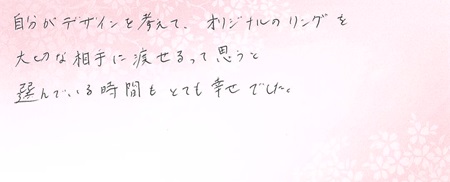 自分がデザインを考えて、オリジナルのリングを
大切な相手に渡せるって思うと
選んでいる時間もとても幸せでした。